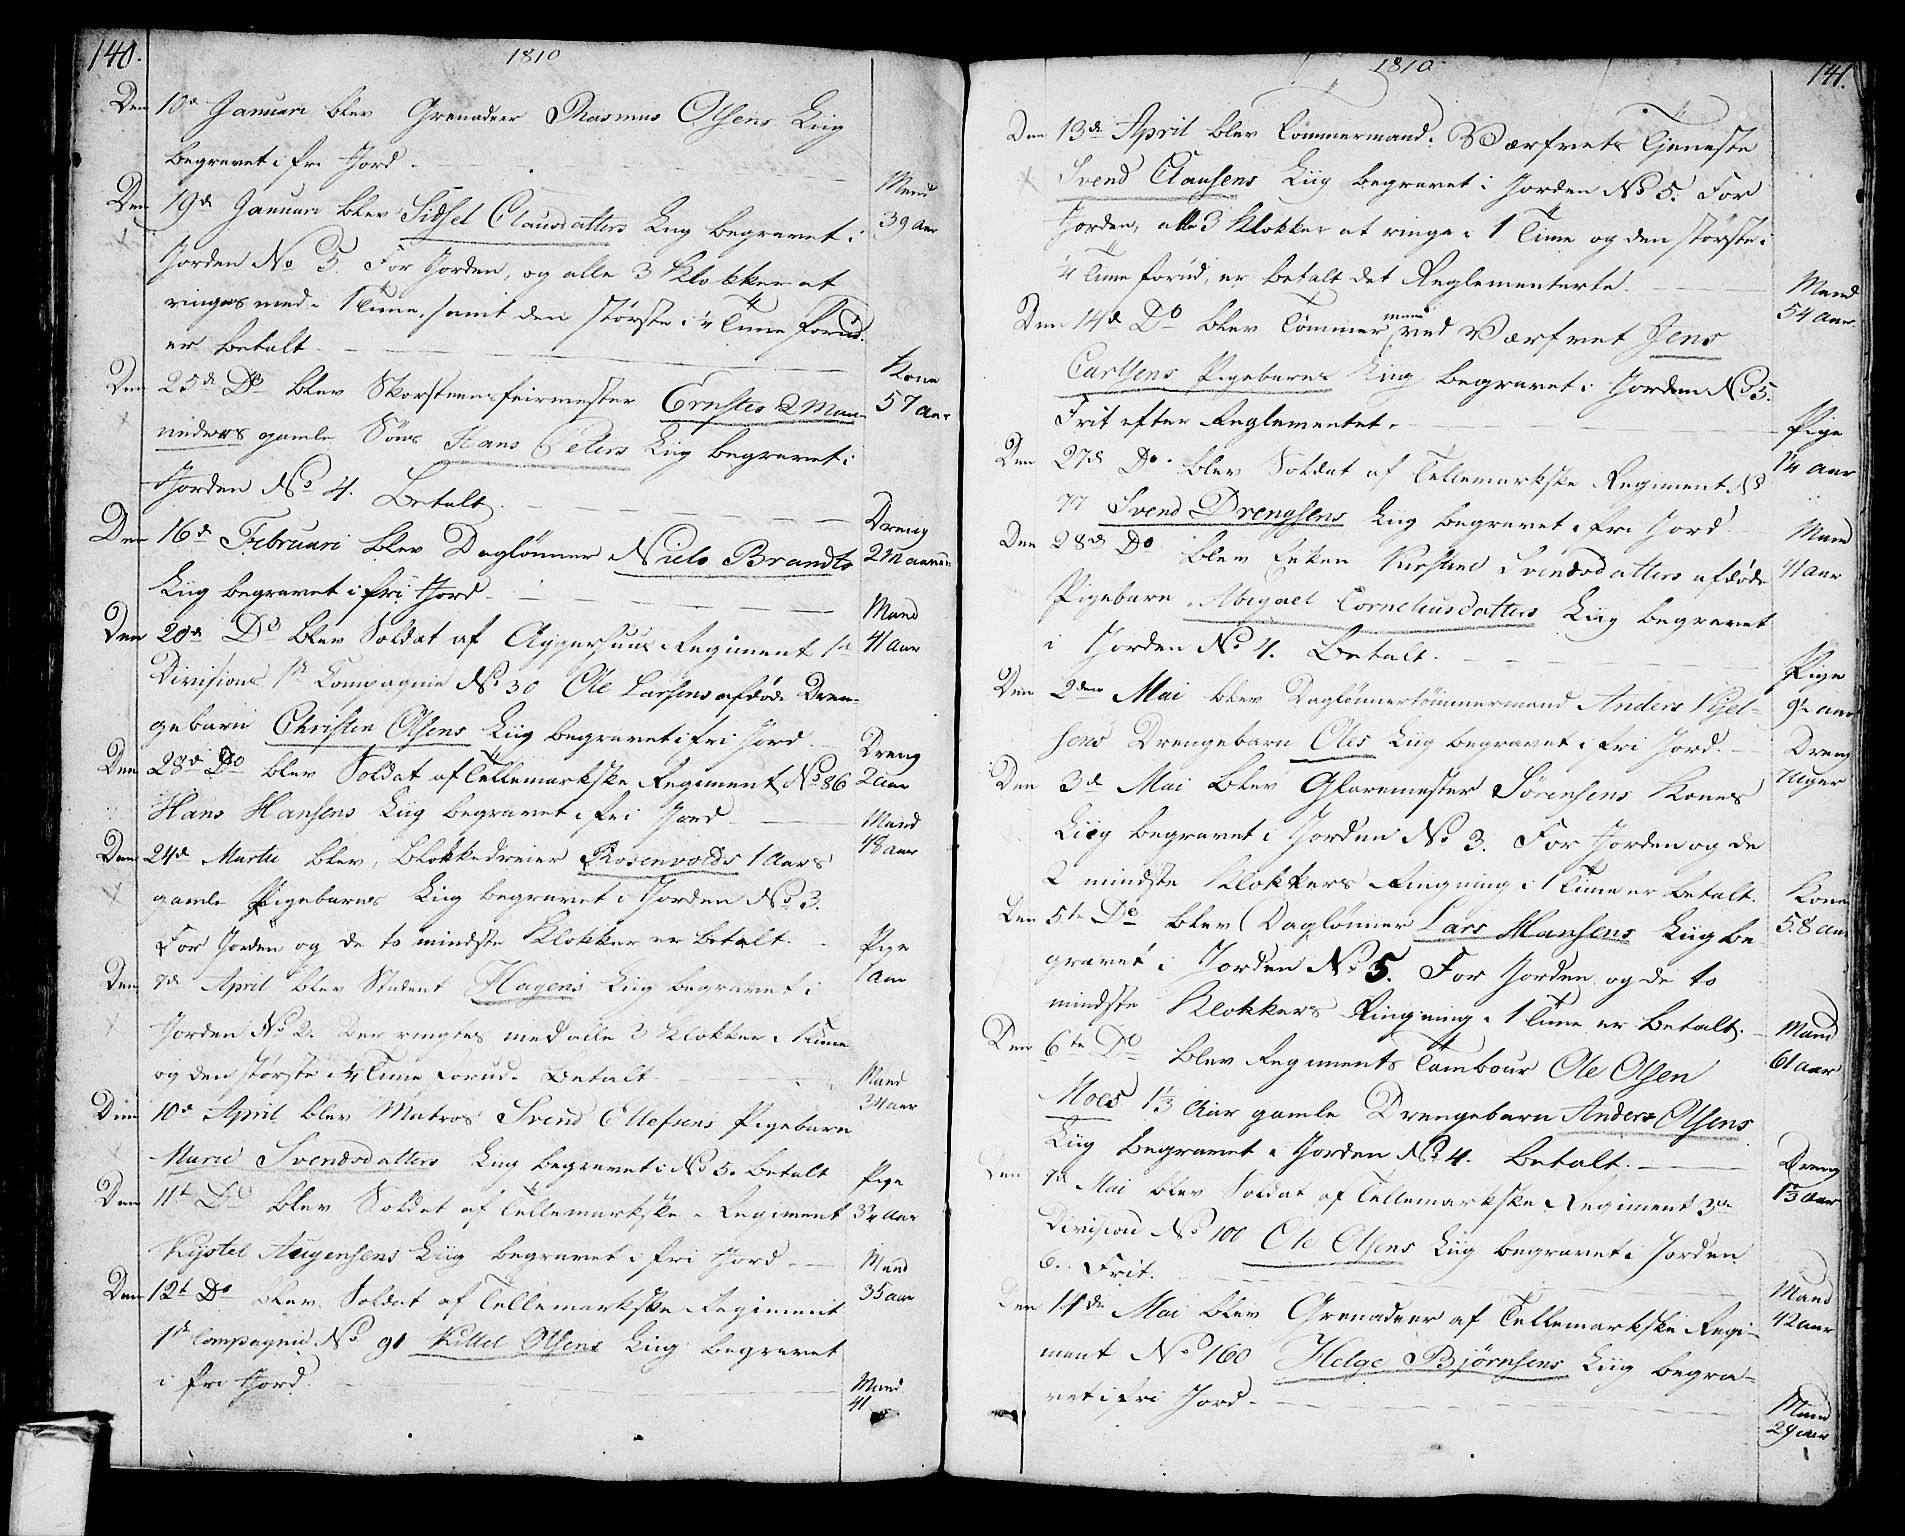 140.
1810
Den 10de Januari blev Grenadeer Rasmus Olsens Liig
begravet i fri Jord. Mand
39 Aar
Den 19de Januari blev Sidsel Clausdatters Liig begravet i
Jorden No 5. For Jorden, og alle 3 Klokker at
ringes med i 1 Time, samt den største i 1/4 Time forud
er betalt Kone
57 Aar
Den 25de Do blev Skorsteensfeiermester Ernstes 2 Maa-
neders gamle Søns Hans Peters Liig begravet i
Jorden No 4. Betalt. Dreng
2 Maaned:
Den 16de Februari blev Daglønner Niels Brandts
Liig begravet i fri Jord. Mand
41 Aar
Den 20de Do blev Soldat af Aggershuus Regiment 1te
Divisions 1te Compagnie No 30 Ole Larsens afdøde Dren-
gebarn Christen Olsens Liig begravet i fri Jord Dreng
2 Aar
Den 28de Do blev Soldat af Tellemarkske Regiment No 86
Hans Hansens Liig begravet i fri Jord Mand
48 Aar
Den 24de Martii blev Blokkedreier Rosenvolds 1 Aars
gamle Pigebarns Liig begravet i Jorden No 3.
For Jorden og de to mindste Klokker er betalt. Pige
1 Aar
Den 7de April blev Student Hagens Liig begravet i
Jorden No 2. Der ringtes med alle 3 Klokker i 1 Time
og den største i 1/4 Time forud. Betalt. Mand
34 Aar
Den 10de April blev Matros Svend Ellefsens Pigebarn
Marie Svendsdatters Liig begravet i No 5. Betalt Pige
3 1/4 Aar
Den 11te Do blev Soldat af Tellemarkske Regiment
Kystel Augensens Liig begravet i fri Jord. Mand
35 Aar
Den 12te Do blev Soldat af Tellemarkske Regiment
1te Compagnie No 91 Kittel Olsens Liig begravet
i fri Jord Mand
41
1810
141.
Den 13de April blev Tømmermand i Værfvets Tjeneste
Svend Clausens Liig begravet i Jorden No 5. For
Jorden, alle 3 Klokker at ringe i 1 Time og den største i
1/4 Time forud, er betalt det Reglementerte. Mand
54 Aar
Den 14de Do blev Tømmermand ved Værfvet Jens
Carlsens Pigebarns Liig begravet i Jorden No 5.
Frit efter Reglementet. Pige
1/4 Aar
Den 27de Do. blev Soldat af Tellemarkske Regiment No
77 Svend Drengsens Liig begravet i fri Jord Mand
41 Aar
Den 28de Do blev Enken Kirstine Svendsdatters afdøde
Pigebarn Abigael Corneliusdatters Liig begravet
i Jorden No 4. Betalt. Pige
9 1/2 Aar
Den 2den Mai blev Daglønnertømmermand Anders Visel-
sens Drengebarn Oles Liig begravet i fri Jord. Dreng
7 Uger
Den 3de Mai blev Glarmester Sørensens Kones
Liig begravet i Jorden No 3. For Jorden og de
2 mindste Klokkers Ringning i 1 Time er betalt. Kone
58 Aar
Den 5te Do blev Daglønner Lars Hansens Liig be
gravet i Jorden No 5. For Jorden og de to
mindste Klokkers Ringning i 1 Time er betalt. Mand
61 Aar
Den 6te Do blev Regiments Tambour Ole Olsen
Moes 1 1/3 Aar gamle Drengebarn Anders Olsens
Liig begravet i Jorden No 4. Betalt. Dreng
1 1/3 Aar
Den 7de Mai blev Soldat af Tellemarkske Regiment 3de
Division No 100 Ole Olsens Liig begravet i Jorden
6. Frit. Mand
42 Aar
Den 11de Mai blev Grenadeer af Tellemarkske Regi-
ment No 160 Helge Bjørnsens Liig begra-
vet i fri Jord. Mand
29 Aar